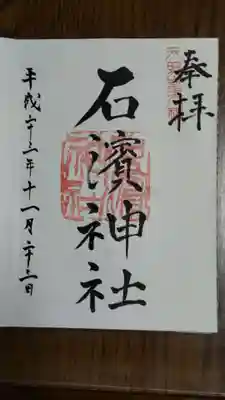 奉拝
石濱神社
平成二十三年十一月二十三日